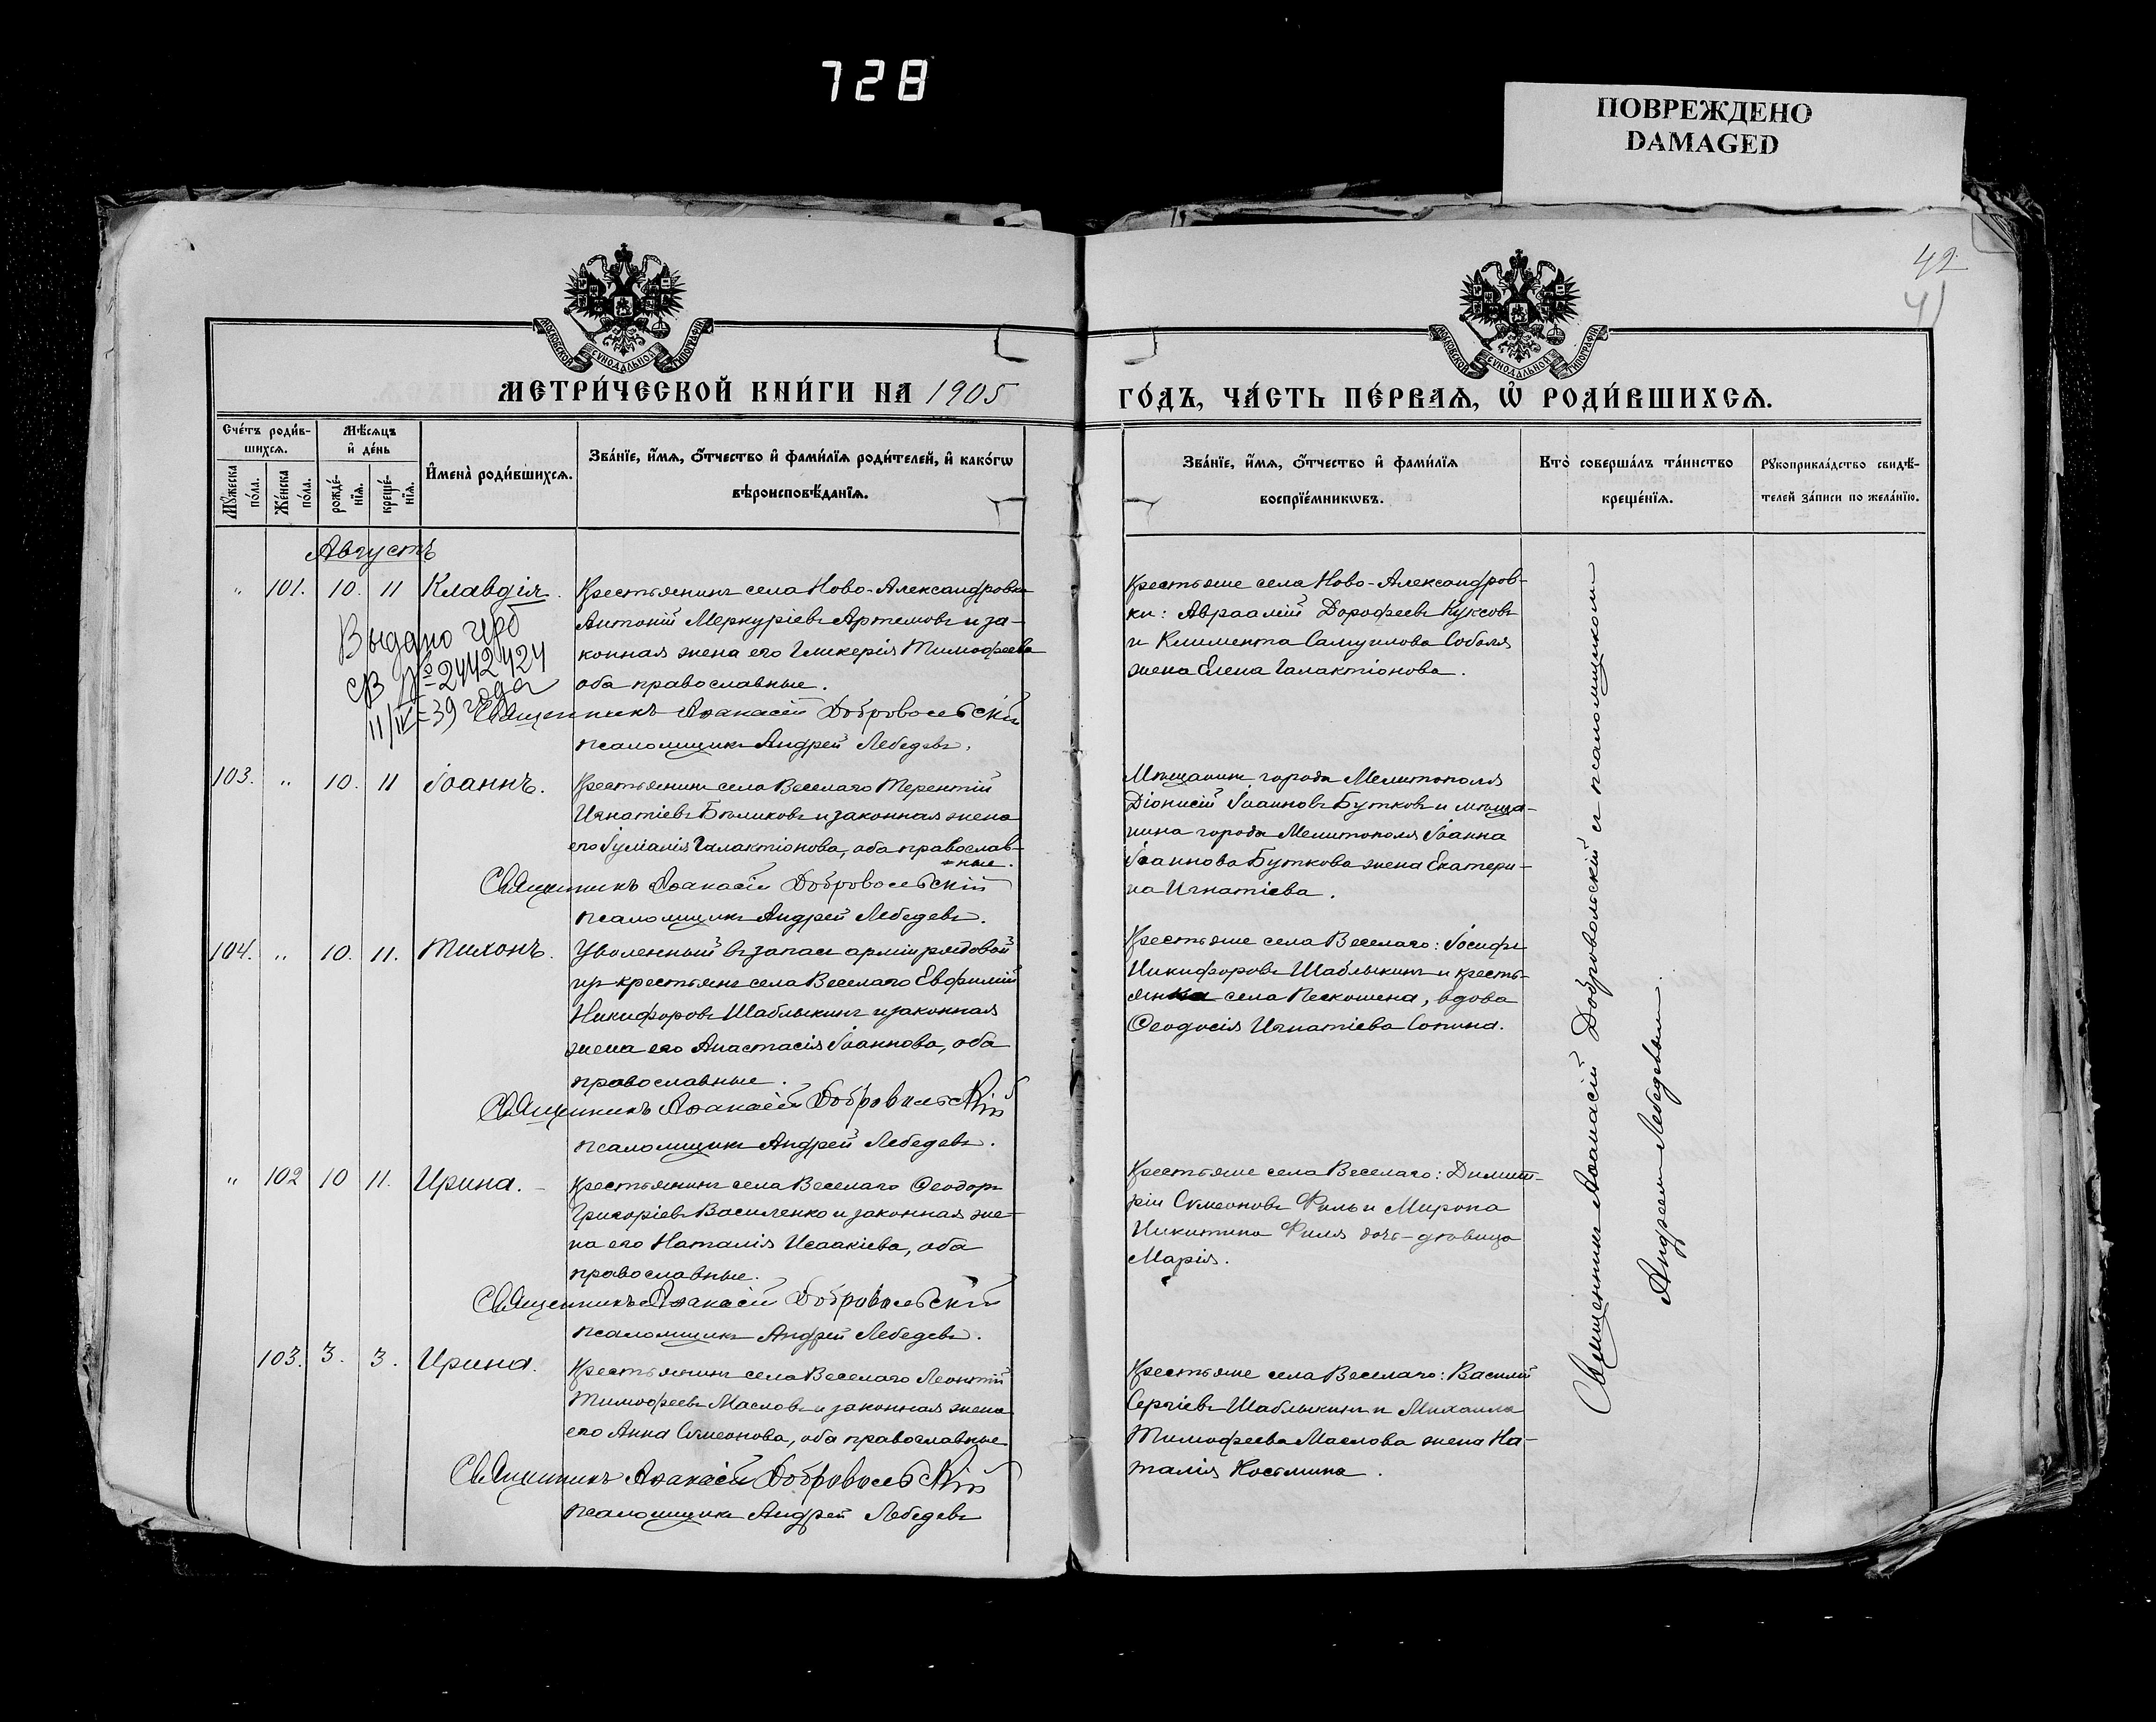 728
ПОВРЕЖДЕНО
DAMAGED
42
41
МОСКОВСКОЙ СѴНОДАЛЬНОЙ ТИПОГРАФІИ
МОСКОВСКОЙ СѴНОДАЛЬНОЙ ТИПОГРАФІИ
МЕТРИ́ЧЕСКОЙ КНИ́ГИ НА 1905
ГО́ДЪ, ЧА́СТЬ ПЕ́РВАѦ, Ѡ҆ РОДИ́ВШИХСѦ.
Сче́тъ роди́в-
шихсѧ.
Мꙋ́жеска
по́ла.
Же́нска
по́ла.
Мѣ́сѧцъ
и҆ де́нь
рожде́-
нїѧ.
креще́-
нїѧ.
И҆мена̀ роди́вшихсѧ.
Зва́нїе, и҆́мѧ, ѻ҆́тчество и҆ фами́лїѧ роди́телей, и҆ како́гѡ
вѣроисповѣ́данїѧ.
Зва́нїе, и҆́мѧ, ѻ҆́тчество и҆ фами́лїѧ
воспрїе́мникѡвъ.
Кто̀ соверша́лъ та́инство
креще́нїѧ.
Рꙋкоприкла́дство свидѣ́-
телей за́писи по жела́нїю.
Августъ
" 101. 10. 11 Клавдія.
Крестьянинъ села Ново-Александровки
Антоній Меркуріевъ Артемовъ и за-
конная жена его Гликерія Тимофеева
оба православные.
Выдано
св №2442424
11/IV-39 года
Священникъ Аѳанасій Добровольскій
псаломщикъ Андрей Лебедевъ.
Крестьяне села Ново-Александров-
ки: Авраамій Дорофеевъ Куксовъ
и Климента Самуилова Соболя
жена Елена Галактіонова.
103. " 10. 11 Іоаннъ.
Крестьянинъ села Веселаго Терентій
Игнатіевъ Бѣликовъ и законная жена
его Іуліанія Галактіонова, оба православ-
ные.
Священникъ Аѳанасій Добровольскій
псаломщикъ Андрей Лебедевъ.
Мѣщанинъ города Мелитополя
Діонисій Іоанновъ Бутковъ и мѣща-
нина города Мелитополя Іоанна
Іоаннова Буткова жена Екатери-
на Игнатіева.
104. " 10. 11. Тихонъ.
Уволенный въ запасъ арміи рядовой
изъ крестьянъ села Веселаго Евфимій
Никифоровъ Шаблыкинъ и законная
жена его Анастасія Іоаннова, оба
православные.
Священникъ Аѳанасій Добровольскій
псаломщикъ Андрей Лебедевъ.
Крестьяне села Веселаго: Іосифъ
Никифоровъ Шаблыкинъ и кресть-
янка села Пескошена, вдова
Ѳеодосія Игнатіева Сопина.
" 102 10 11. Ирина.
Крестьянинъ села Веселаго Ѳеодоръ
Григоріевъ Василенко и законная же-
на его Наталія Исаакіева, оба
православные.
Священникъ Аѳанасій Добровольскій
псаломщикъ Андрей Лебедевъ.
Крестьяне села Веселаго: Димит-
рій Симеоновъ Филь и Мирона
Никитина Филя дочь-дѣвица
Марія.
103. 3. 3. Ирина.
Крестьянинъ села Веселаго Леонтій
Тимофеевъ Масловъ и законная жена
его Анна Симеонова, оба православные
Священникъ Аѳанасій Добровольскій
псаломщикъ Андрей Лебедевъ
Крестьяне села Веселаго: Василій
Сергіевъ Шаблыкинъ и Михаила
Тимофеева Маслова жена На-
талія Косьмина.
Священникъ Аѳанасій Добровольскій съ псаломщикомъ
Андреемъ Лебедевымъ.